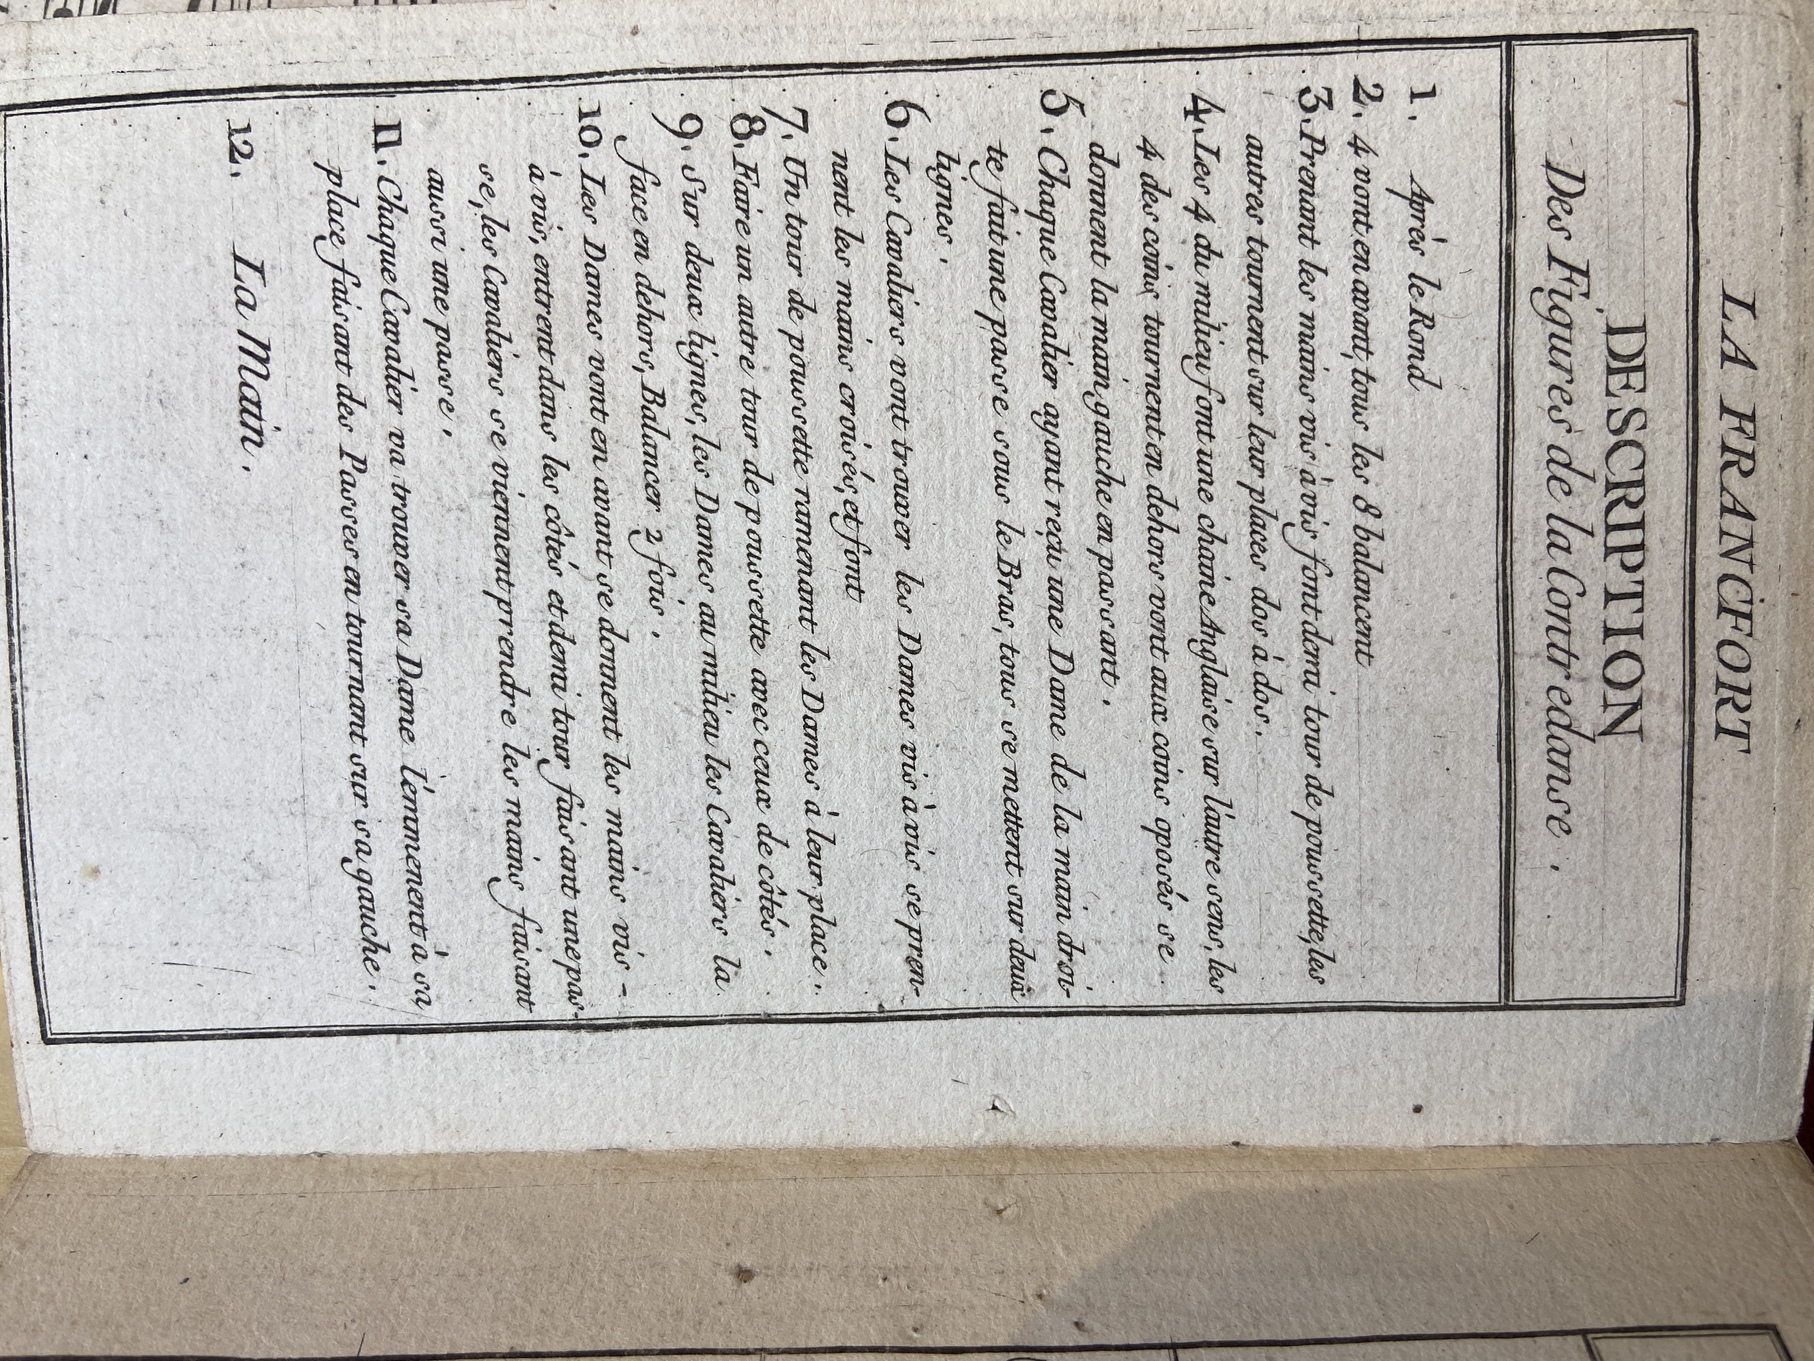 LA FRANCFORT
DESCRIPTION
Des Figures de la Contredanse.
1. Aprés le Rond
2. 4 vont en avant, tous les 8 balancent
3. Prenant les mains vis à vis font demi tour de poussette, les
autres tournent sur leur places dos à dos.
4. Les 4 du milieu font une chaine Anglaise sur l'autre sens, les
4 des coins tournent en dehors vont aux coins oposés se
donnent la main gauche en passant.
5. Chaque Cavalier ayant reçu une Dame de la main droi-
te fait une passe sous le Bras, tous se mettent sur deux
lignes.
6. Les Cavaliers vont trouver les Dames vis à vis se pren-
nent les mains croisés, et font
7. Un tour de poussette ramenant les Dames à leur place.
8. Faire un autre tour de poussette avec ceux de côtés.
9. Sur deux lignes, les Dames au milieu les Cavaliers la
face en dehors, Balancer 2 fois.
10. Les Dames vont en avant se donnent les mains vis-
à vis, entrent dans les côtés et demi tour faisant une pas-
se, les Cavaliers se viennent prendre les mains faisant
aussi une passe.
11. Chaque Cavalier va trouver sa Dame l'emmenent à sa
place faisant des Passes en tournant sur sa gauche.
12. La Main.